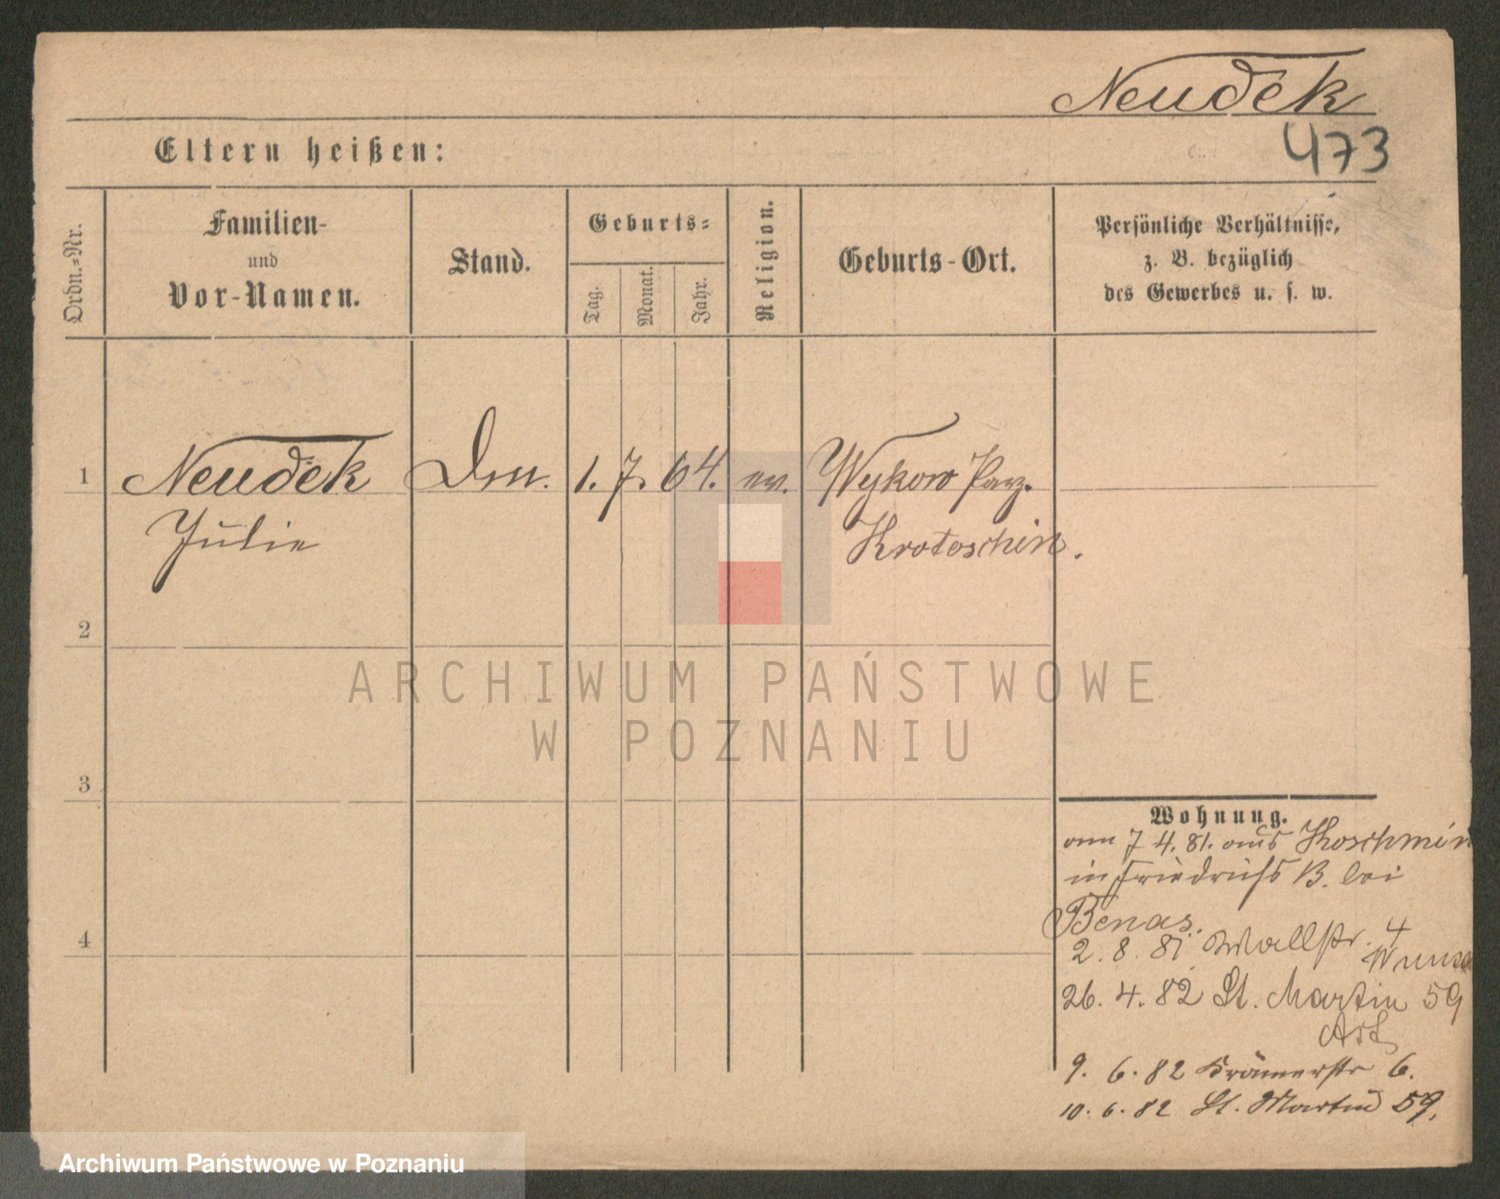 Neudek
473
Eltern heißen:
Ordn.-Nr.
Familien-
und
Vor-Namen.
Stand.
Geburts-
Tag.
Monat.
Jahr.
Religion.
Geburts-Ort.
Persönliche Verhältnisse,
z. B. bezüglich
des Gewerbes u. s. w.
1 Neudek 1. 7. 64. ev. Wykow Parz.
Julie Krotoschin.
2
3
4
Wohnung.
7 4. 81. aus Koschmin
in Friedrichs B. bei
Benas.
2. 8. 81 Wallstr. 4
26. 4. 82 St. Martin 59
9. 6. 82 Krämerstr 6.
10. 6. 82 St. Martin 59.
ARCHIWUM PAŃSTWOWE
W POZNANIU
Archiwum Państwowe w Poznaniu